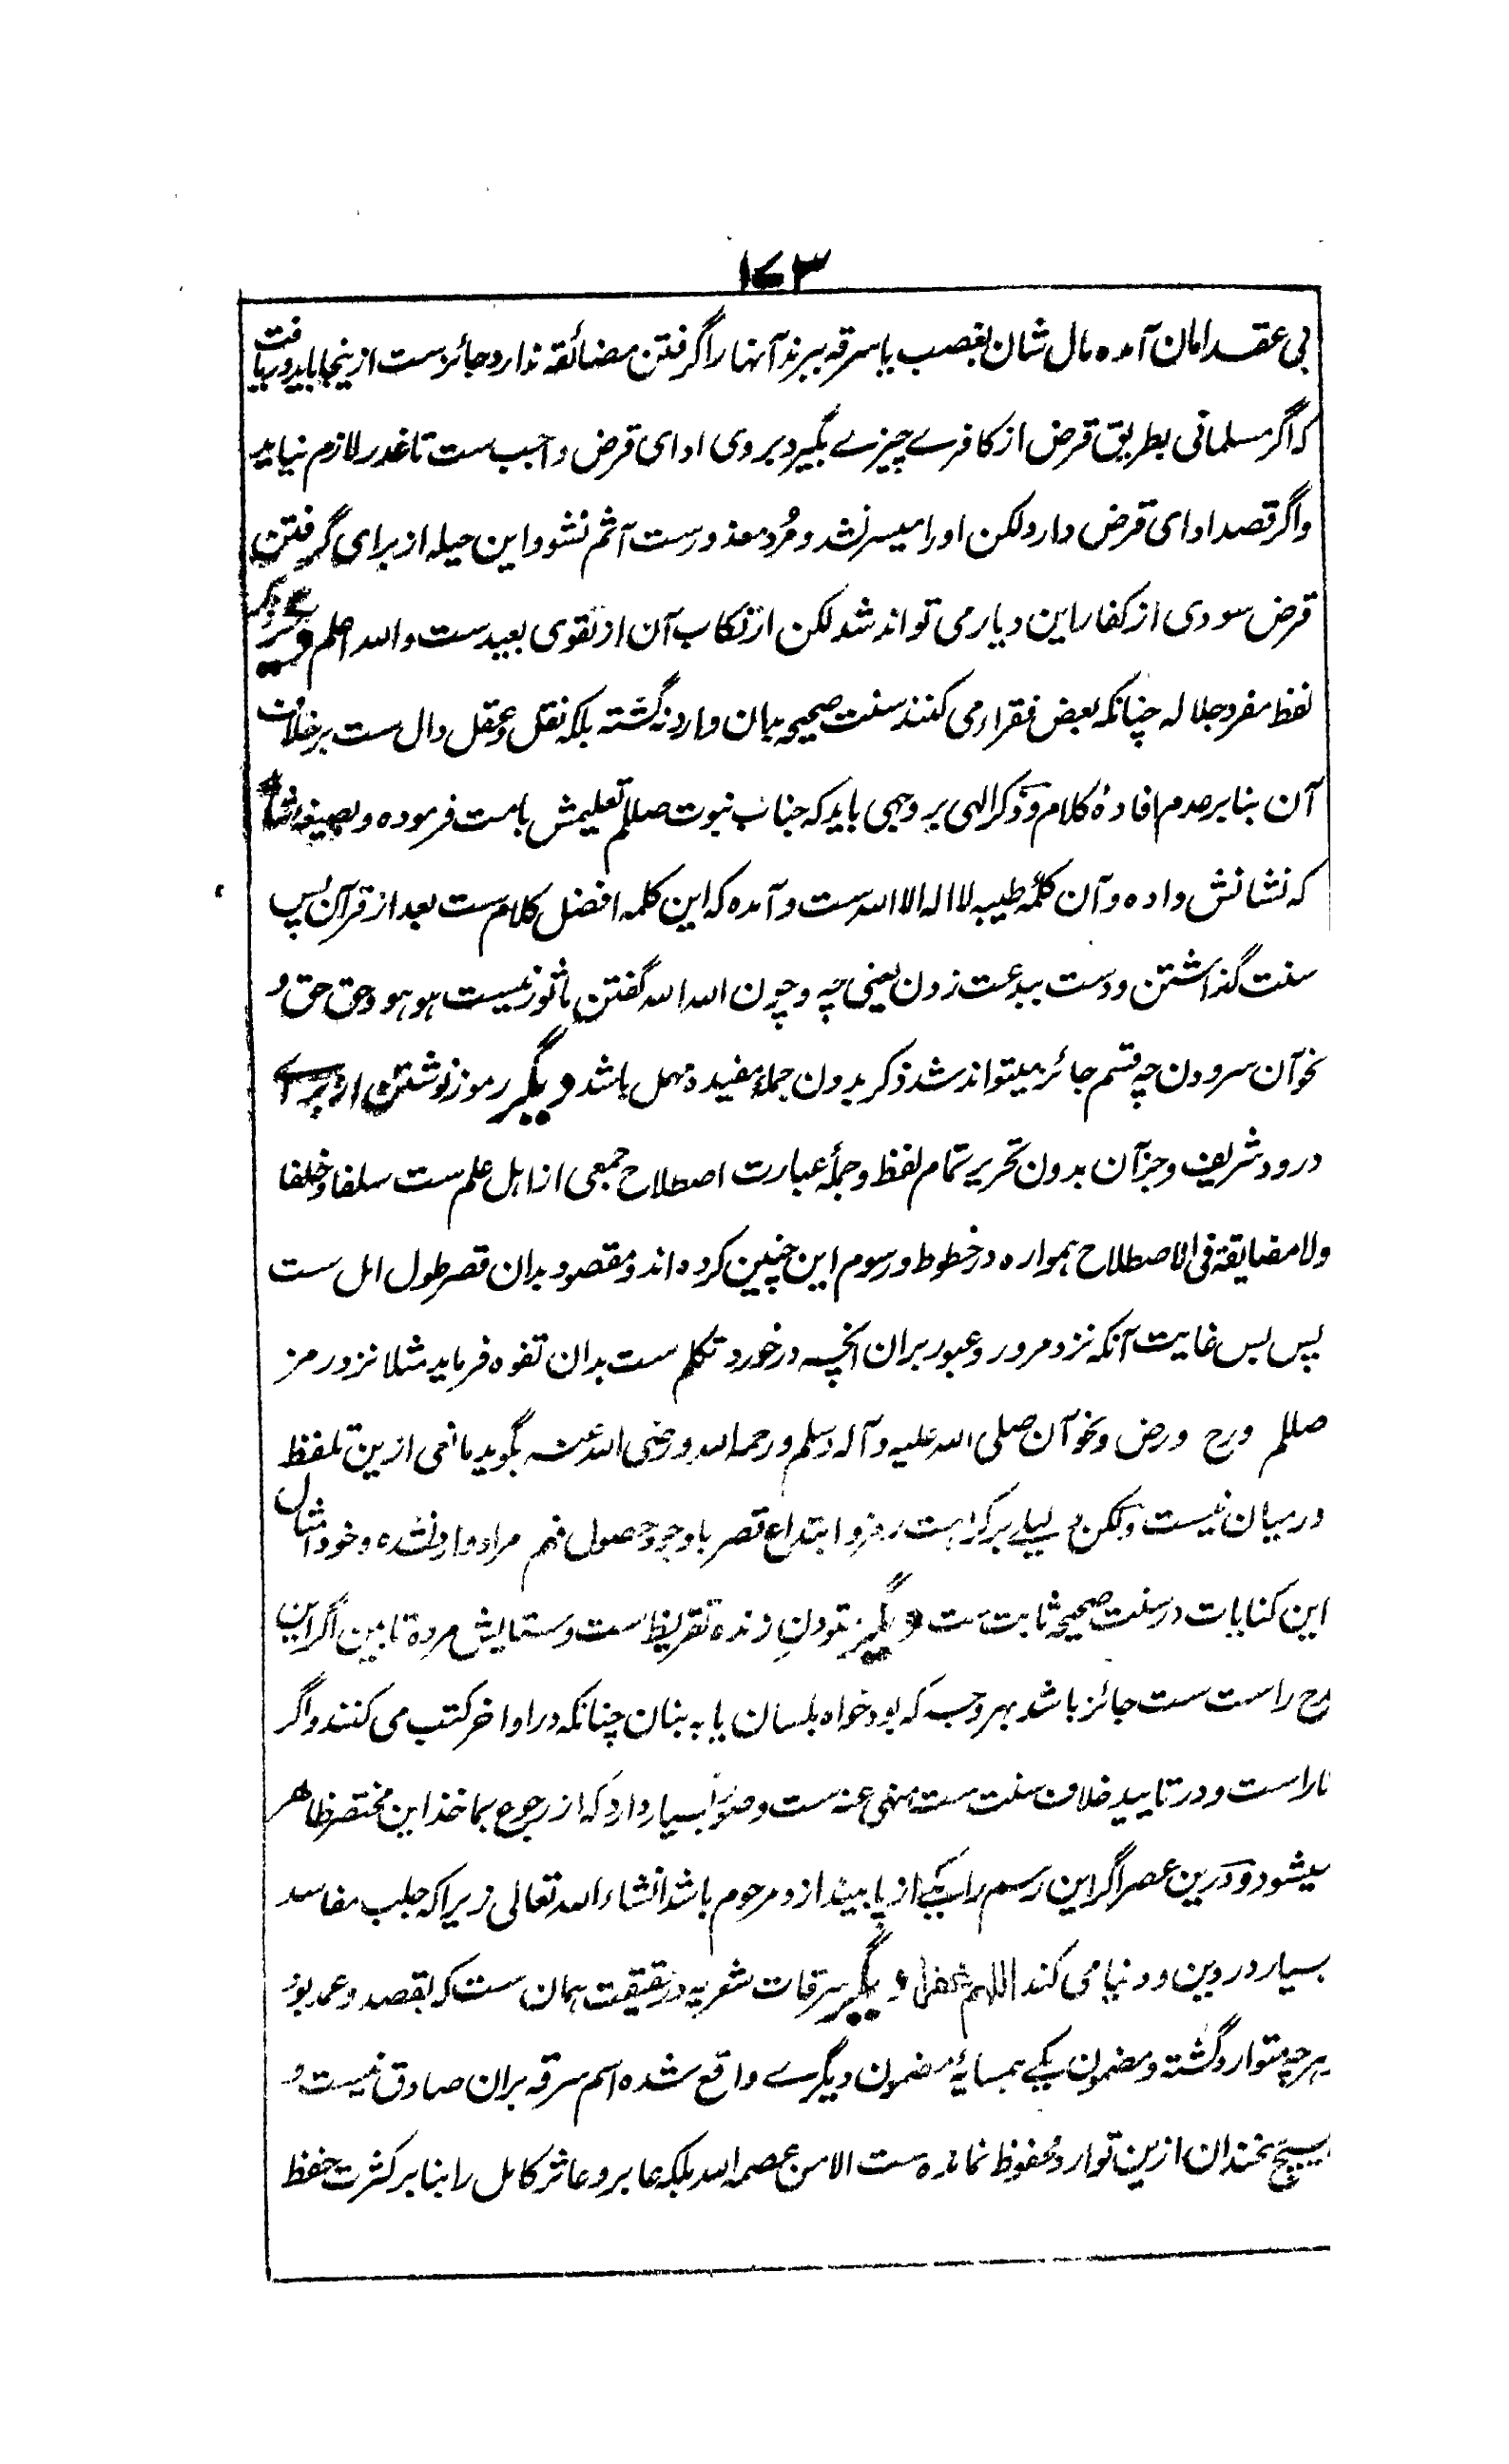 ۱۷۳
بی عقد امان آمده مال شان بغصب یا سرقه ببرند آنها را گرفتن مضائقه ندارد جائزست ازینجا باید دریافت
که اگر مسلمانی بطریق قرض از کافرے چیزے بگیرد بروی ادای قرض واجب ست تا غدر لازم نیاید
و اگر قصد ادای قرض دارد لکن او را میسر نشد و مُرد معذورست آثم نشود این حیله از برای گرفتن
قرض سودی از کفار این دیار می تواند شد لکن ارتکاب آن از تقوی بعیدست والله اعلم دیگر ذکر
لفظ مفرد جلاله چنانکه بعض فقرا می کنند سنت صحیحه بدان وارد نگشته بلکه نقل و عقل دال ست بر خلاف
آن بنا بر عدم افادهٔ کلام و ذکر الهی بر وجهی باید که جناب نبوت صللم تعلیمش بامت فرموده و بصیغه‌اش
که نشانش داده و آن کلمهٔ طیبه لا اله الا الله ست و آمده که این کلمه افضل کلام ست بعد از قرآن پس
سنت گذاشتن و دست ببدعت زدن یعنی چه و چون الله الله گفتن ماثور نیست هو هو و حق حق و
نحو آن سرودن چه قسم جائز میتواند شد ذکر بدون جملهٔ مفیده مهمل باشد دیگر رموز نوشتن از براے
درود شریف و جز آن بدون تحریر تمام لفظ و جملهٔ عبارت اصطلاح جمعی از اهل علم ست سلفا و خلفا
و لا مضایقة فی الاصطلاح همواره در خطوط و رسوم این چنین کرده اند و مقصود بدان قصر طول امل ست
پس بس غایت آنکه نزد مرور و عبور بران آنچه درخورد تکلم ست بدان تفوه فرماید مثلا نزد رمز
صللم و رح و رض و نحو آن صلی الله علیه و آله وسلم و رحمه الله و رضی الله عنه بگوید مانعی ازین تلفظ
درمیان نیست و لکن دلیلے بر کراهت رمز و ابتداع قصر با وجود حصول فهم مراد وارد نشده و خود امثال
این کنایات در سنت صحیحه ثابت ست دیگر ستودنِ زنده تقریظ ست و ستایش مرده تابین اگر این
مدح راست ست جائز باشد بهر وجه که بود خواه بلسان یا به بنان چنانکه در اواخر کتب می کنند و اگر
ناراست و در تایید خلاف سنت ست منهی عنه ست و صور بسیار دارد که از رجوع بماخذ این مختصر ظاهر
میشود و درین عصر اگر این رسم را یکے از پا بیندازد مرحوم باشد انشاء الله تعالی زیرا که جلب مفاسد
بسیار در دین و دنیا می کند اللهم غفرا دیگر سرقات شعریه در حقیقت همان ست که بقصد و عمد بود
هرچه متوارد گشته و مضمون یکے همسایهٔ مضمون دیگرے واقع شده اسم سرقه بران صادق نیست و
هیچ سخندان ازین توارد محفوظ نمانده ست الا من عصمه الله بلکه عابر و عاثر کامل را بنا بر کثرت حفظ